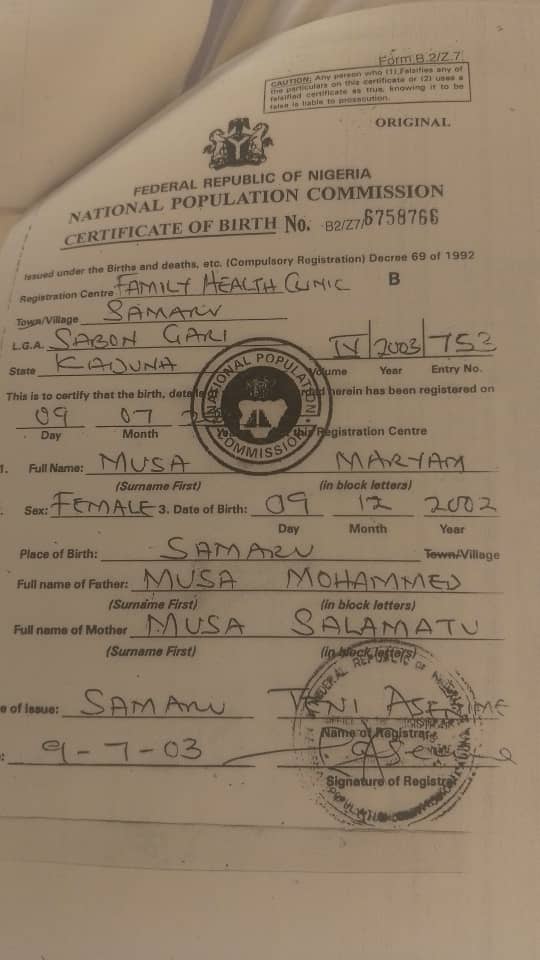 Form B.2/Z.7
CAUTION: Any person who (1) Falsifies any of
the particulars on this certificate or (2) uses a
falsified certificate as true, knowing it to be
false is liable to prosecution.
ORIGINAL
FEDERAL REPUBLIC OF NIGERIA
NATIONAL POPULATION COMMISSION
CERTIFICATE OF BIRTH No. B2/Z7/6758766
Issued under the Births and deaths, etc. (Compulsory Registration) Decree 69 of 1992
Registration Centre FAMILY HEALTH CLINIC B
Town/Village SAMARU
L.G.A. SABON GARI IV 2003 753
State KADUNA Volume Year Entry No.
NATIONAL POPULATION COMMISSION
This is to certify that the birth, herein has been registered on
09 07
Day Month this Registration Centre
1. Full Name: MUSA MARYAM
(Surname First) (in block letters)
Sex: FEMALE 3. Date of Birth: 09 12 2002
Day Month Year
Place of Birth: SAMARU Town/Village
Full name of Father: MUSA MOHAMMED
(Surname First) (in block letters)
Full name of Mother MUSA SALAMATU
(Surname First) (in block letters)
FEDERAL REPUBLIC OF
e of issue: SAMARU
Name of Registrar
9-7-03
Signature of Registrar